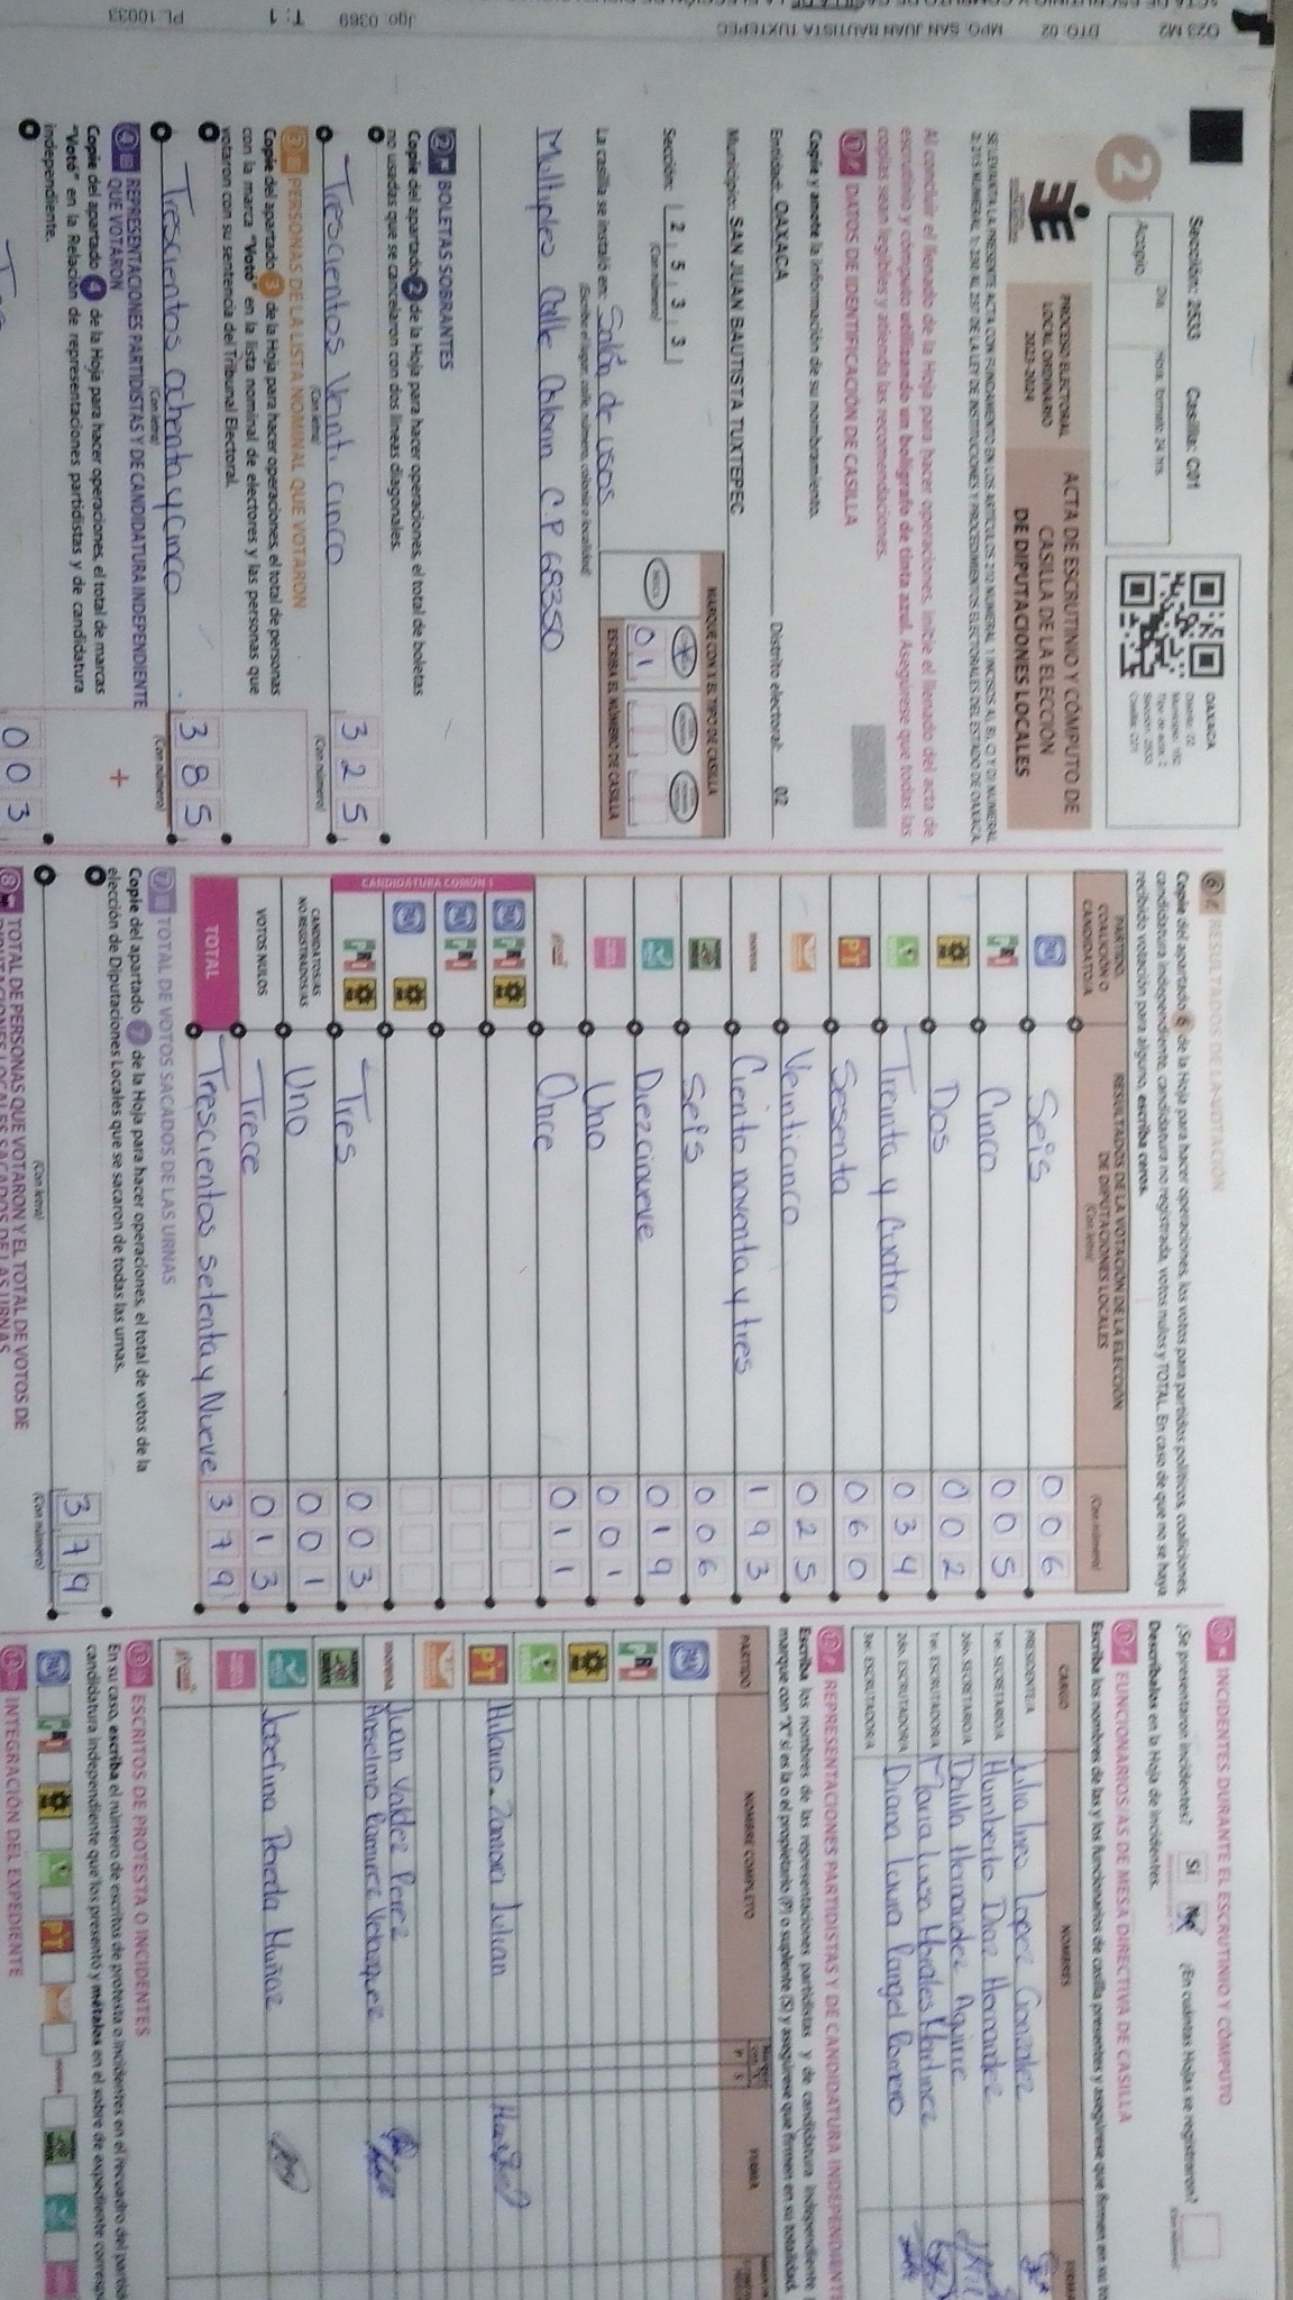 Sección: 2533 Casilla: C01
OAXACA
2
Acopio
Día
Hora: formato 24 hrs.
PROCESO ELECTORAL
LOCAL ORDINARIO
2023-2024
ACTA DE ESCRUTINIO Y CÓMPUTO DE
CASILLA DE LA ELECCIÓN
DE DIPUTACIONES LOCALES
Al concluir el llenado de la Hoja para hacer operaciones, inicie el llenado del acta de
escrutinio y cómputo utilizando un bolígrafo de tinta azul. Asegúrese que todas las
copias sean legibles y atienda las recomendaciones.
1 DATOS DE IDENTIFICACIÓN DE CASILLA
Copie y anote la información de su nombramiento.
Entidad: OAXACA Distrito electoral: 02
Municipio: SAN JUAN BAUTISTA TUXTEPEC
Sección: 2 5 3 3
(Con número)
MARQUE CON X EL TIPO DE CASILLA
01
ESCRIBA EL NÚMERO DE CASILLA
La casilla se instaló en: Salón de usos
(Escriba el lugar, calle, número, colonia o localidad)
Multiples Calle Colorin CP 68350
2 BOLETAS SOBRANTES
Copie del apartado 2 de la Hoja para hacer operaciones, el total de boletas
no usadas que se cancelaron con dos líneas diagonales.
Trescientos Veinti cinco 325
(Con letra) (Con número)
3 PERSONAS DE LA LISTA NOMINAL QUE VOTARON
Copie del apartado 3 de la Hoja para hacer operaciones, el total de personas
con la marca "Votó" en la lista nominal de electores y las personas que
votaron con su sentencia del Tribunal Electoral.
Trescientos ochenta y cinco 385
(Con letra) (Con número)
4 REPRESENTACIONES PARTIDISTAS Y DE CANDIDATURA INDEPENDIENTE
QUE VOTARON +
Copie del apartado 4 de la Hoja para hacer operaciones, el total de marcas
"Votó" en la Relación de representaciones partidistas y de candidatura
independiente.
003
6 RESULTADOS DE LA VOTACIÓN
Copie del apartado 6 de la Hoja para hacer operaciones, los votos para partidos políticos, coaliciones,
candidatura independiente, candidatura no registrada, votos nulos y TOTAL. En caso de que no se haya
recibido votación para alguno, escriba ceros.
PARTIDO,
COALICIÓN O
CANDIDATO/A
RESULTADOS DE LA VOTACIÓN DE LA ELECCIÓN
DE DIPUTACIONES LOCALES
(Con letra) (Con número)
PAN Seis 006
PRI Cinco 005
PRD Dos 002
Treinta y Cuatro 034
PT Sesenta 060
Veinticinco 025
morena Ciento noventa y tres 193
Seis 006
Diezcinueve 019
Uno 001
Once 011
CANDIDATURA COMÚN 1
PAN PRI PRD
PAN PRI
PAN PRD
PRI PRD Tres 003
CANDIDATOS/AS
NO REGISTRADOS/AS Uno 001
VOTOS NULOS Trece 013
TOTAL Trescientos setenta y Nueve 379
7 TOTAL DE VOTOS SACADOS DE LAS URNAS
Copie del apartado 7 de la Hoja para hacer operaciones, el total de votos de la
elección de Diputaciones Locales que se sacaron de todas las urnas.
379
(Con letra) (Con número)
8 TOTAL DE PERSONAS QUE VOTARON Y EL TOTAL DE VOTOS DE
DIPUTACIONES LOCALES SACADOS DE LAS URNAS
INCIDENTES DURANTE EL ESCRUTINIO Y CÓMPUTO
¿Se presentaron incidentes? Sí No ¿En cuántas Hojas se registraron?
Descríbalos en la Hoja de incidentes.
FUNCIONARIOS/AS DE MESA DIRECTIVA DE CASILLA
Escriba los nombres de las y los funcionarios de casilla presentes y asegúrese que firmen en su
CARGO NOMBRES
PRESIDENTE/A Julia Ines Lopez Gonzalez
1er. SECRETARIO/A Humberto Diaz Hernandez
2do. SECRETARIO/A Dalila Hernandez Aguirre
1er. ESCRUTADOR/A Maria Luisa Morales Martinez
2do. ESCRUTADOR/A Diana Laura Rangel Romero
3er. ESCRUTADOR/A
REPRESENTACIONES PARTIDISTAS Y DE CANDIDATURA INDEPENDIENTE
Escriba los nombres de las representaciones partidistas y de candidatura independiente
marque con "X" si es la o el propietario (P) o suplente (S) y asegúrese que firmen en su totalidad.
PARTIDO NOMBRE COMPLETO P S FIRMA
PAN
PRI
PRD
PT Hilario Zamora Julian
morena Juan Valdez Perez
Anselmo Ramirez Velazquez
Josefina Parada Muñoz
ESCRITOS DE PROTESTA O INCIDENTES
En su caso, escriba el número de escritos de protesta o incidentes en el recuadro del partido
candidatura independiente que los presentó y métalos en el sobre de expediente
PAN PRI PRD PT
INTEGRACIÓN DEL EXPEDIENTE
O23 M2 DTO: 02 MPO: SAN JUAN BAUTISTA TUXTEPEC Jgo: 0369 T: 1 PL: 10033